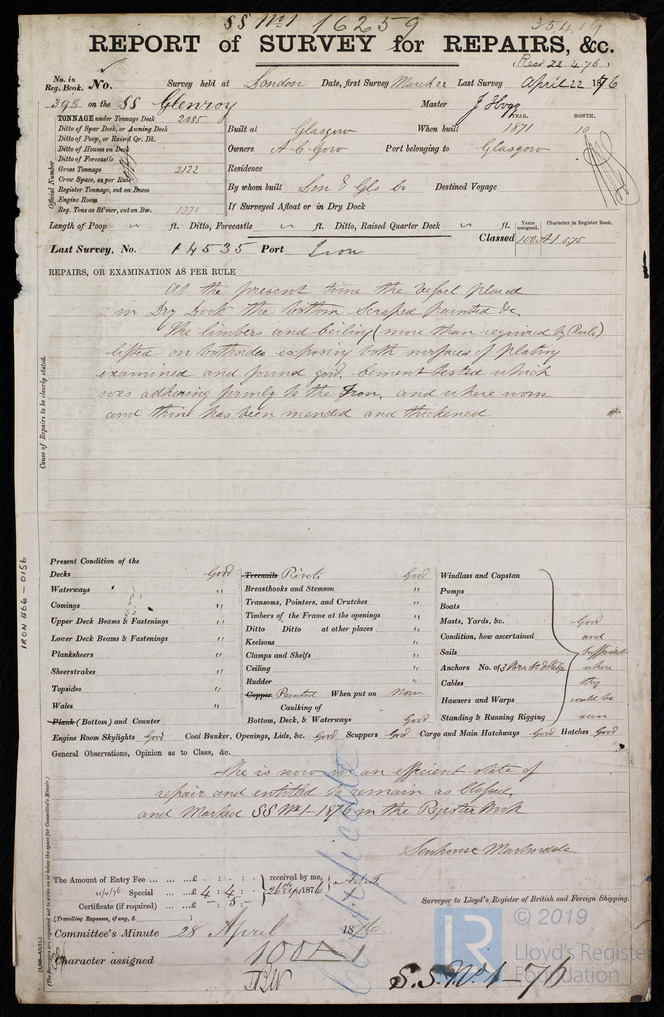 SS No 1 16259
REPORT of SURVEY for REPAIRS, &c.
Recd 22.4.76
No. in Reg. Book. No. Survey held at London Date, first Survey March 22 Last Survey April 22 1876
398 on the SS Glenroy Master J Hogg
TONNAGE under Tonnage Deck 2085
Ditto of Spar Deck, or Awning Deck
Ditto of Poop, or Raised Qr. Dk.
Ditto of Houses on Deck
Ditto of Forecastle
Gross Tonnage 2122
Crew Space, as per Rule
Register Tonnage, cut on Beam
Engine Room
Reg. Tons as St'mer, cut on Bm. 1371
Official Number
YEAR. MONTH.
Built at Glasgow When built 1871 10
Owners A C Gow Port belonging to Glasgow
Residence
By whom built Lon & Gls Co Destined Voyage
If Surveyed Afloat or in Dry Dock
Length of Poop ft. Ditto, Forecastle ft. Ditto, Raised Quarter Deck ft.
Years assigned. Character in Register Book.
Classed 100 A1 5,75
Last Survey, No. 14535 Port Iron
REPAIRS, OR EXAMINATION AS PER RULE
At the present time the Vessel placed
in Dry Dock the bottom Scraped painted &c.
The limbers and ceiling (more than required by Rule)
lifted on bothsides exposing both surfaces of plating
examined and found good, Cement tested which
was adhering firmly to the Iron, and where worn
and thin has been mended and thickened
Cause of Repairs to be clearly stated.
IRON 466-0156
Present Condition of the
Decks Good
Waterways "
Comings "
Upper Deck Beams & Fastenings "
Lower Deck Beams & Fastenings "
Planksheers "
Sheerstrakes "
Topsides "
Wales "
Plank (Bottom) and Counter "
Treenails Rivets Good
Breasthooks and Stemson "
Transoms, Pointers, and Crutches "
Timbers of the Frame at the openings "
Ditto Ditto at other places "
Keelsons "
Clamps and Shelfs "
Ceiling "
Rudder "
Copper Painted When put on Now
Caulking of
Bottom, Deck, & Waterways Good
Windlass and Capstan
Pumps
Boats
Masts, Yards, &c.
Condition, how ascertained
Sails
Anchors No. of
Cables
Hawsers and Warps
Standing & Running Rigging
Good
and
Sufficient
where
they
could be
seen
Engine Room Skylights Good Coal Bunker, Openings, Lids, &c. Good Scuppers Good Cargo and Main Hatchways Good Hatches Good
General Observations, Opinion as to Class, &c.
She is now in an efficient state of
repair and entitled to remain as Classed
and Marked SS No 1-1876 in the Register Book
Senhouse Martindale
The Amount of Entry Fee £ : : received by me,
Special £ 4 : 4 :
Certificate (if required) : 5 :
(Travelling Expenses, if any, £ )
Surveyor to Lloyd's Register of British and Foreign Shipping.
Committee's Minute 28 April 1876
Character assigned 100 A 1
S.S. No. 1-76
Certificate
© 2019
Lloyd's Register
Foundation